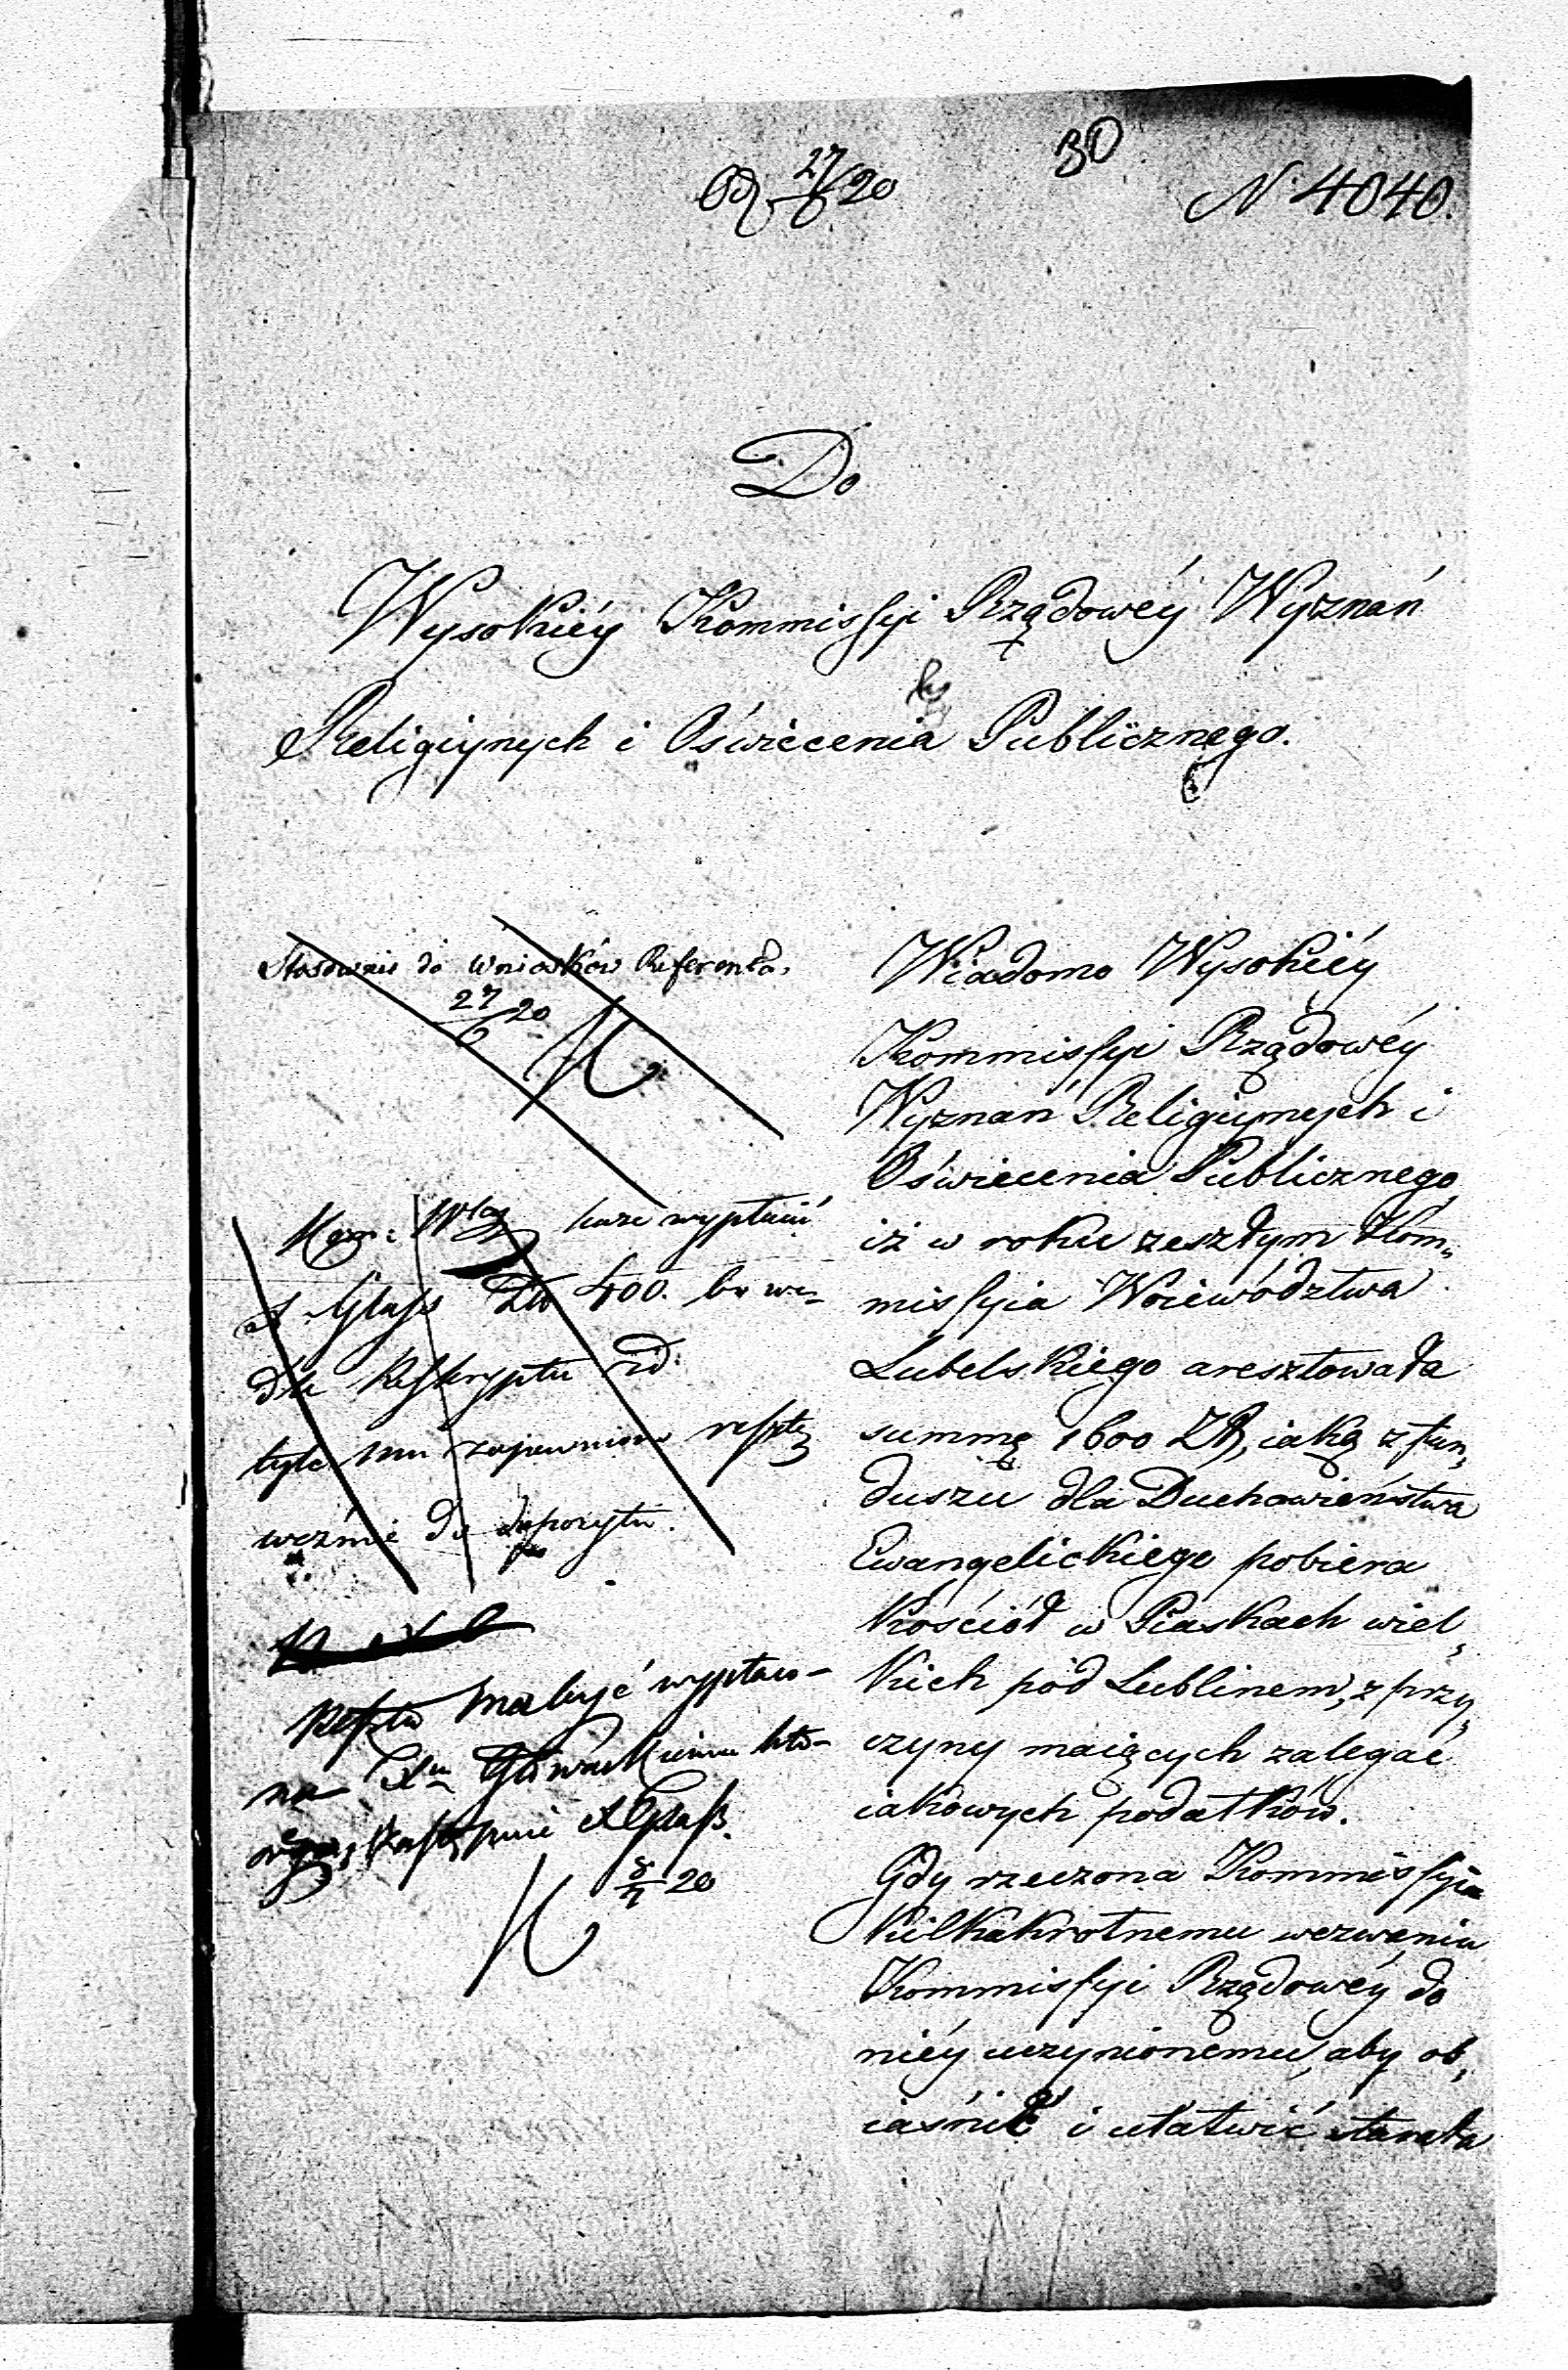 30
27/6 20
N 4040.
Do
Wysokiéy Kommissyi Rządowéy Wyznań
Religiynych i Oświecenia Publicznego.
Stosownie do wniosków Referenta.
27/6 20
kaze wypłacić
X. Glass Zło 400. bo we-
dle Reskryptu
tyle mu zapewniono resztę
weźmie do depozytu.
Reszta ma być wypłaco-
na
X Glass.
8/7 20
Wiadomo Wysokiéy
Kommissyi Rządowéy
Wyznań Religiynych i
Oświecenia Publicznego
iż w roku zeszłym Kom„
missyia Woiewództwa
Lubelskiego aresztowała
summę 1600 Zł, iaką z fun„
duszu dla Duchowieństwa
Ewangelickiego pobiera
kościół w Piaskach wiel„
kich pod Lublinem, z przy„
czyny maiących zalegać
iakowych podatków.
Gdy rzeczona Kommissyia
kilkakrotnemu wezwaniu
Kommissyi Rządowéy do
niéy uczynionemu, aby ob„
iaśnić i ułatwić